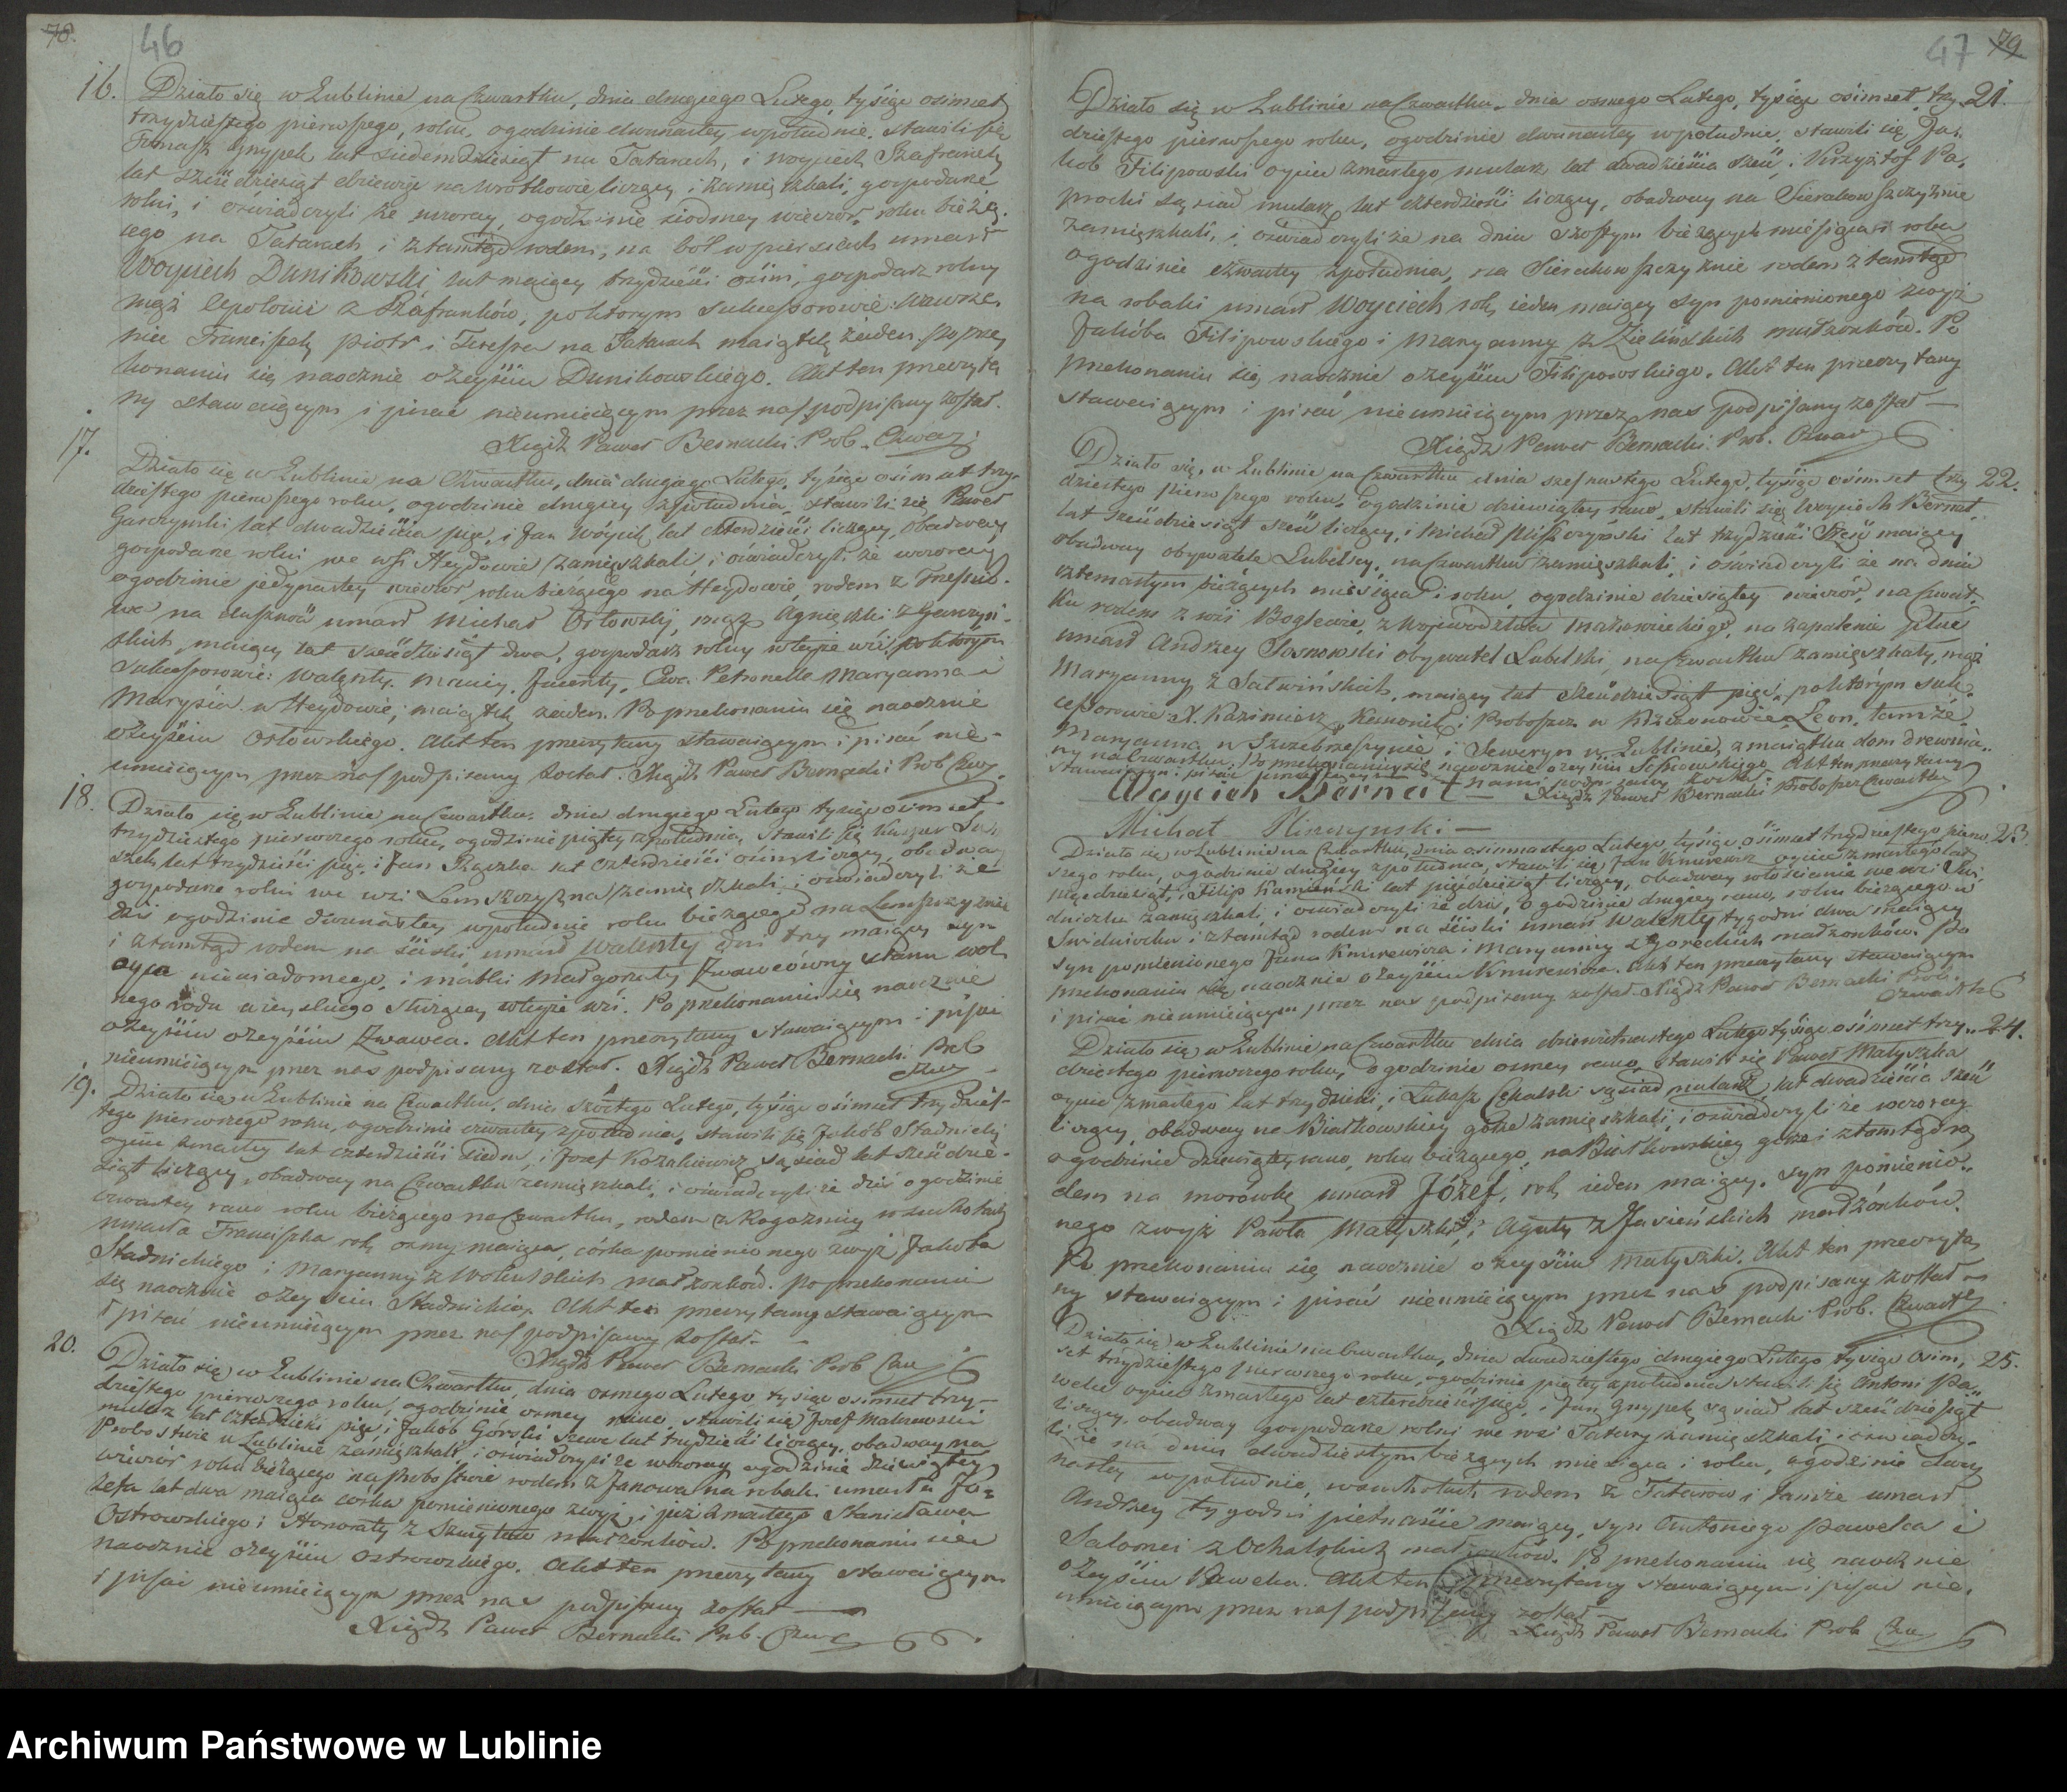 78. 46
16. Działo się w Lublinie na Czwartku, dnia drugiego Lutego, tysiąc osimset
trzydziestego pierwszego, roku, o godzinie dwunastey w południe. stawili się
Tomasz Gnypek lat siedemdziesiąt na Tatarach, i Woyciech Szafranek
lat sześćdziesiąt dziewięć na Wrotkowie liczący i zamięszkali, gospodarze
rolni, i oświadczyli że wczoray, o godzinie siodmey wieczór, roku bieżą-
cego na Tatarach i ztamtąd rodem, na ból w piersiach umarł
Woyciech Dunikowski lat maiący trzydzieści ośim, gospodarz rolny
mąż Apolonii z Szafranków, po ktorym sukcessorowie: Wawrze-
niec Franciszek Piotr i Teressa na Tatarach maiątek żaden. Po prze-
konaniu się naocznie o zeyściu Dunikowskiego. Akt ten przeczyta
ny stawaiącym i pisać nieumieiącym przez nas podpisany został.
Xiądz Paweł Bernacki Prob. Czwar.
17. Działo się w Lublinie na Czwartku, dnia drugiego Lutego, tysiąc ośimset trzy-
dziestego pierwszego roku, o godzinie drugiey z południa, stawili się Paweł
Garczyński lat dwadzieścia pięć, i Jan Wóycik lat czterdzieści liczący, obadway
gospodarze rolni we wsi Heydowie zamięszkali i oświadczyli że wczoray
o godzinie jedynastey wieczór roku bieżącego na Heydowie, rodem z
na duszność umarł Michał Orłowski, mąż Agnieszki z Garczyń-
skich, maiący lat sześćdziesiąt dwa, gospodarz rolny w teyże wsi, po ktorym
sukcessorowie: Walenty, Maciey, Jacenty, Ewa Petronella Maryanna i
Marysia w Heydowie, maiątek żaden. Po przekonaniu się naocznie
o zeyściu Orłowskiego. Akt ten przeczytany stawaiącym i pisać nie-
umieiącym przez nas podpisany został. Xiądz Paweł Bernacki Prob Czwar.
18. Działo się w Lublinie na Czwartku, dnia drugiego Lutego tysiąc osimset
trzydziestego pierwszego roku, o godzinie piątey z południa, stawili się Kasper
lat trzydzieści pięć, i Jan Rączka lat czterdzieści ośim liczący, obadway
gospodarze rolni we wsi Lemszczyzna zamięszkali, i oświadczyli że
dziś o godzinie dwunastey w południe roku bieżącego na Lemszczyznie
i ztamtąd rodem na ściski umarł Walenty dni trzy maiący syn
oyca niewiadomego, i matki Małgorzaty Zwawcówny stanu wol
nego rodu wieyskiego służącey w teyże wsi. Po przekonaniu się naocznie
o zeyściu o zeyściu Zwawca. Akt ten przeczytany stawaiącym i pisać
nieumieiącym przez nas podpisany został. Xiądz Paweł Bernacki Prob
Czwar.
19. Działo się w Lublinie na Czwartku, dnia szóstego Lutego, tysiąc ośimset trzydzies-
tego pierwszego roku, o godzinie czwartey z południa, stawili się Jakób Stadnicki
oyciec zmarłey lat czterdzieści siedm, i Jozef Kozakiewicz sąsiad lat sześćdzie-
siąt liczący, obadway na Czwartku zamięszkali, i oświadczyli że dziś o godzinie
czwartey rano roku bieżącego na Czwartku, rodem z Rogoźnicy w suchotach
umarła Franciszka rok osmy maiąca, córka pomienionego zwyż Jakóba
Stadnickiego i Maryanny z Wolińskich małżonków. Po przekonaniu
się naocznie o zeyściu Stadnickiey. Akt ten przeczytany stawaiącym
i pisać nieumieiącym przez nas podpisany został.
Xiądz Paweł Bernacki Prob Czw
20. Działo się w Lublinie na Czwartku, dnia osmego Lutego tysiąc osimset trzy-
dziestego pierwszego roku, o godzinie osmey rano, stawili się Jozef Makowski
mularz lat czterdzieści pięć, i Jakób Górski szewc lat trzydzieści liczący, obadway na
Probostwie w Lublinie zamięszkali, i oświadczyli że wczoray o godzinie dziewiątey
wieczór roku bieżącego na Probostwie rodem z Janowa na robaki umarła Jo-
zefa lat dwa maiąca córka pomienionego zwyż, i już zmarłego Stanisława
Ostrowskiego i Honoraty z małżonków. Po przekonaniu się
naocznie o zeyściu Ostrowskiego. Akt ten przeczytany stawaiącym
i pisać nieumieiącym przez nas podpisany został
Xiądz Paweł Bernacki Prob. Czwar
47 79
Działo się w Lublinie na Czwartku, dnia osmego Lutego, tysiąc ośimset trzy 21.
dziestego pierwszego roku, o godzinie dwunastey w południe, stawili się Ja-
kob Filipowski oyciec zmarłego mularz lat dwadzieścia sześć, i Krzysztof Pa-
procki sąsiad mularz lat czterdzieści liczący, obadway na Sierakowszczyznie
zamięszkali, i oświadczyli że na dniu szóstym bieżących miesiąca i roku
o godzinie czwartey z południa, na Sierakowszczyznie rodem z tamtąd
na robaki umarł Woyciech rok ieden maiący syn pomienionego zwyż
Jakóba Filipowskiego i Maryanny z Zielińskich małżonków. Po
przekonaniu się naocznie o zeyściu Filipowskiego. Akt ten przeczytany
stawaiącym i pisać nieumieiącym przez nas podpisany został
Xiądz Paweł Bernacki Prob. Czwar
Działo się, w Lublinie na Czwartku dnia szesnastego Lutego, tysiąc ośimset trzy 22.
dziestego pierwszego roku, o godzinie dziewiątey rano, stawili się Woyciech Bernat
lat sześćdziesiąt sześć liczący, i Michał Kliszczyński lat trzydzieści sześć maiący
obadway obywatele Lubelscy, na Czwartku zamięszkali, i oświadczyli że na dniu
czternastym bieżących miesiąca i roku, o godzinie dziesiątey wieczór, na Czwart-
ku rodem z wsi z Woiewództwa Mazowieckiego, na zapalenie płuc
umarł Andrzey Sosnowski obywatel Lubelski, na Czwartku zamięszkały, mąż
Maryanny z Salwińskich, maiący lat sześćdziesiąt pięć, po ktorym suk-
cessorowie X. Kazimierz Kanonik i Proboszcz w Leon, tamże
Maryanna w Szczebrzeszynie i Seweryn w Lublinie, z maiątku dom drewnia-
ny na Czwartku. Po przekonaniu się naocznie o zeyściu Sosnowskiego. Akt ten przeczytany
stawaiącym i pisać przez nas podpisany został
Woyciech Bernat Xiądz Paweł Bernacki Proboszcz Czwartku
Michał Kliszczynski
Działo się w Lublinie na Czwartku, dnia osimnastego Lutego, tysiąc ośimset trzydziestego pierw- 23.
szego roku, o godzinie drugiey z południa, stawili się Jan Kmirewicz oyciec zmarłego lat
pięćdziesiąt, i Filip Kamiński lat pięćdziesiąt liczący, obadway włościanie we wsi Świ-
dniczku zamięszkali, i oświadczyli że dziś, o godzinie drugiey rano, roku bieżącego w
Świdniczku i ztamtąd rodem na ściski umarł Walenty, tygodni dwa maiący
syn pomienionego Jana Kmirewicza i Maryanny z Goreckich małżonków. Po
przekonaniu się naocznie o zeyściu Kmirewicza. Akt ten przeczytany stawaiącym
i pisać nieumieiącym przez nas podpisany został. Xiądz Paweł Bernacki Prob.
Czwartk
Działo się w Lublinie na Czwartku dnia dziewiętnastego Lutego tysiąc ośimset trzy- 24.
dziestego pierwszego roku, o godzinie osmey rano, stawili się Paweł Matyszka
oyciec zmarłego lat trzydzieści, i Łukasz Cękalski sąsiad mularz, lat dwadzieścia sześć
liczący, obadway na Białkowskiey górze zamięszkali, i oświadczyli że wczoray
o godzinie dziewiątey rano, roku bieżącego, na Białkowskiey górze i ztamtąd ro-
dem na morówkę umarł Józef, rok ieden maiący, syn pomienio-
nego zwyż Pawła Matyszki, i Agaty z Jasieńskich małżonków.
Po przekonaniu się naocznie o zeyściu Matyszki. Akt ten przeczyta-
ny stawaiącym i pisać nieumieiącym przez nas podpisany został
Xiądz Paweł Bernacki Prob. Czwart
Działo się w Lublinie na Czwartku, dnia dwudziestego drugiego Lutego tysiąc osim- 25.
set trzydziestego pierwszego roku, o godzinie piątey z południa stawili się Antoni Pa-
welec oyciec zmarłego lat czterdzieści pięć, i Jan Gnypek, sąsiad lat sześćdziesiąt
liczący, obadway gospodarze rolni we wsi Tatary zamięszkali, i oswiadczy-
li, że na dniu dwudziestym bieżących miesiąca i roku, o godzinie dwu-
nastey w południe, w suchotach rodem z Tatarow i tamże umarł
Andrzey tygodni pietnaście maiący, syn Antoniego Pawelca i
Salomei z Ochalskich małżonków. Po przekonaniu się naocznie
o zeyściu Pawelca. Akt ten przeczytany stawaiącym i pisać nie-
umieiącym przez nas podpisany został
Xiądz Paweł Bernacki Prob Czw
Archiwum Państwowe w Lublinie